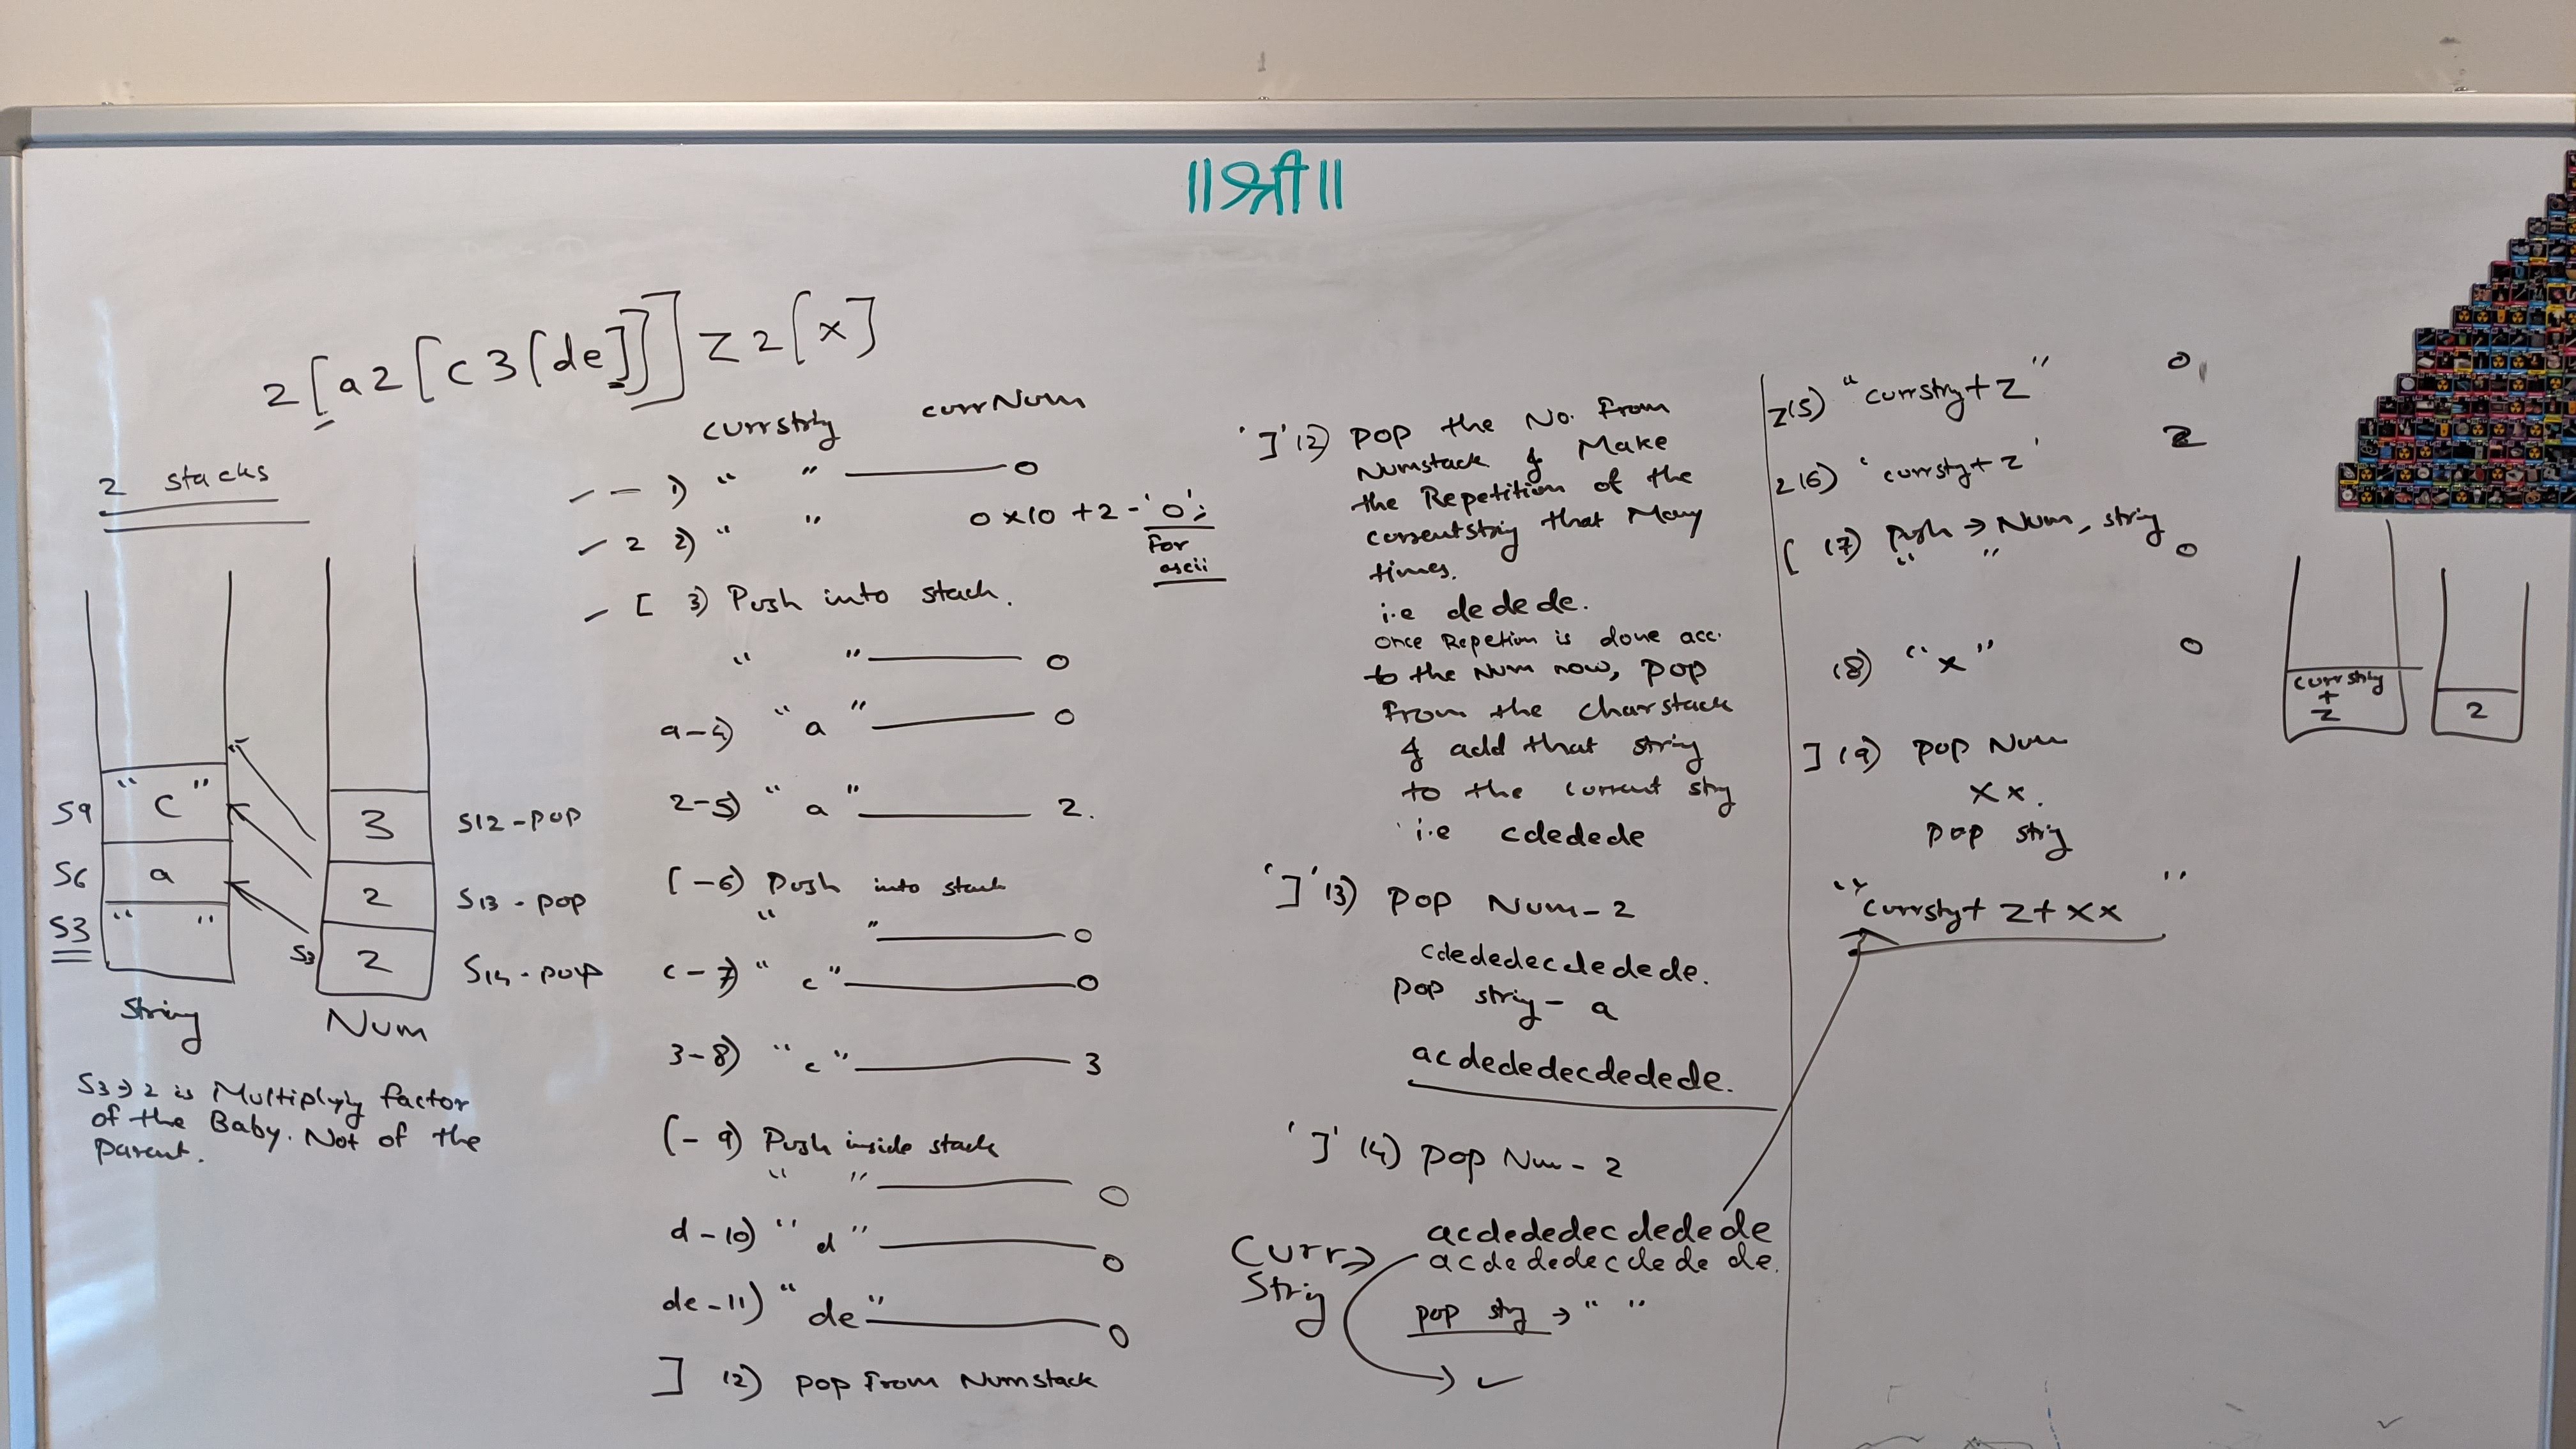 ॥श्री॥
2[a2[c3[de]]]z2[x]
2 stacks
S9 "c"
S6 a
S3 " "
String
3 S12-pop
2 S13-pop
S3 2 S14-pop
Num
S3→2 is Multiplyig factor
of the Baby. Not of the
parent.
currstrig currNum
1) " " 0
2 2) " " 0x10+2-'0';
For
ascii
[ 3) Push into stack.
" " 0
a-4) "a" 0
2-5) "a" 2.
[-6) Push into stack
" " 0
c-7) "c" 0
3-8) "c" 3
[-9) Push inside stack
" " 0
d-10) "d" 0
de-11) "de" 0
] 12) pop from Numstack
']' 12) pop the No. from
Numstack & Make
the Repetition of the
currentstrig that Many
times.
i.e dedede.
once Repetion is done acc.
to the Num now, pop
from the charstack
& add that string
to the current strig
i.e cdedede
']' 13) pop Num-2
cdededecdedede.
pop strig-a
acdededecdedede.
']' 14) pop Num-2
Curr→
String
acdededecdedede
acdededecdedede.
pop strg → " "
✓
z15) "currstrg+z" 0
2 16) 'currstrg+z' 2
[ 17) push → Num, string
" " 0
18) "x" 0
] 19) pop Num
xx.
pop strig
"currstrg+z+xx"
currstrig
+
z
2